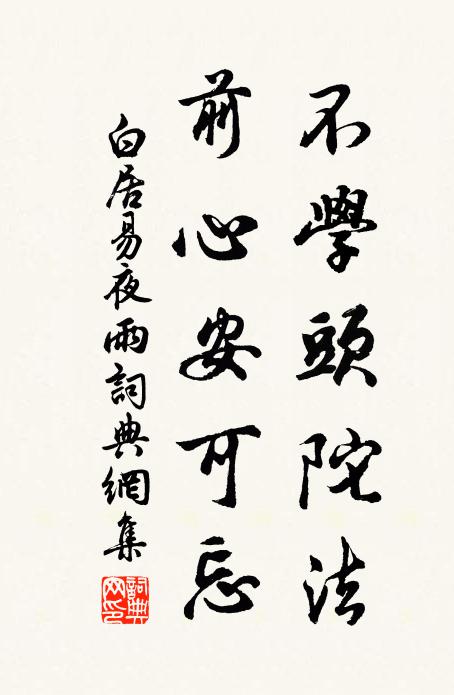 不學頭陀法
前心安可忘
白居易夜雨詞典網集
詞典網印